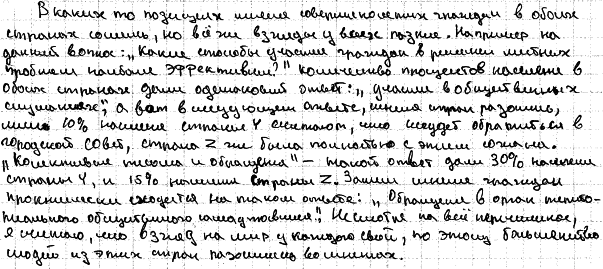 В каких то позициях мнения совершеннолетних граждан в обоих
странах сошлись, но всё же взгляды у всех разные. Например на
данный вопрос: „Какие способы участия граждан в решении местных
проблем наиболее эффективны?" количество процентов населения в
обоих странах дали одинаковый ответ: „участие в общественных
слушаниях", а вот в следующем ответе, мнения стран разошлись,
лишь 10% населения страны Y считают, что следует обратиться в
городской совет, страна Z же была полностью с этим согласна.
„Коллективные письма и обращения" – такой ответ дали 30% населения
страны Y, и 15% населения страны Z. Затем мнения граждан
сходится на таком ответе: „Обращение в орган террито-
риального общественного самоуправления". Несмотря на всё перечисленное,
я считаю, что взгляд на мир у каждого свой, по этому большинство
людей из этих стран разошлись во мнениях.